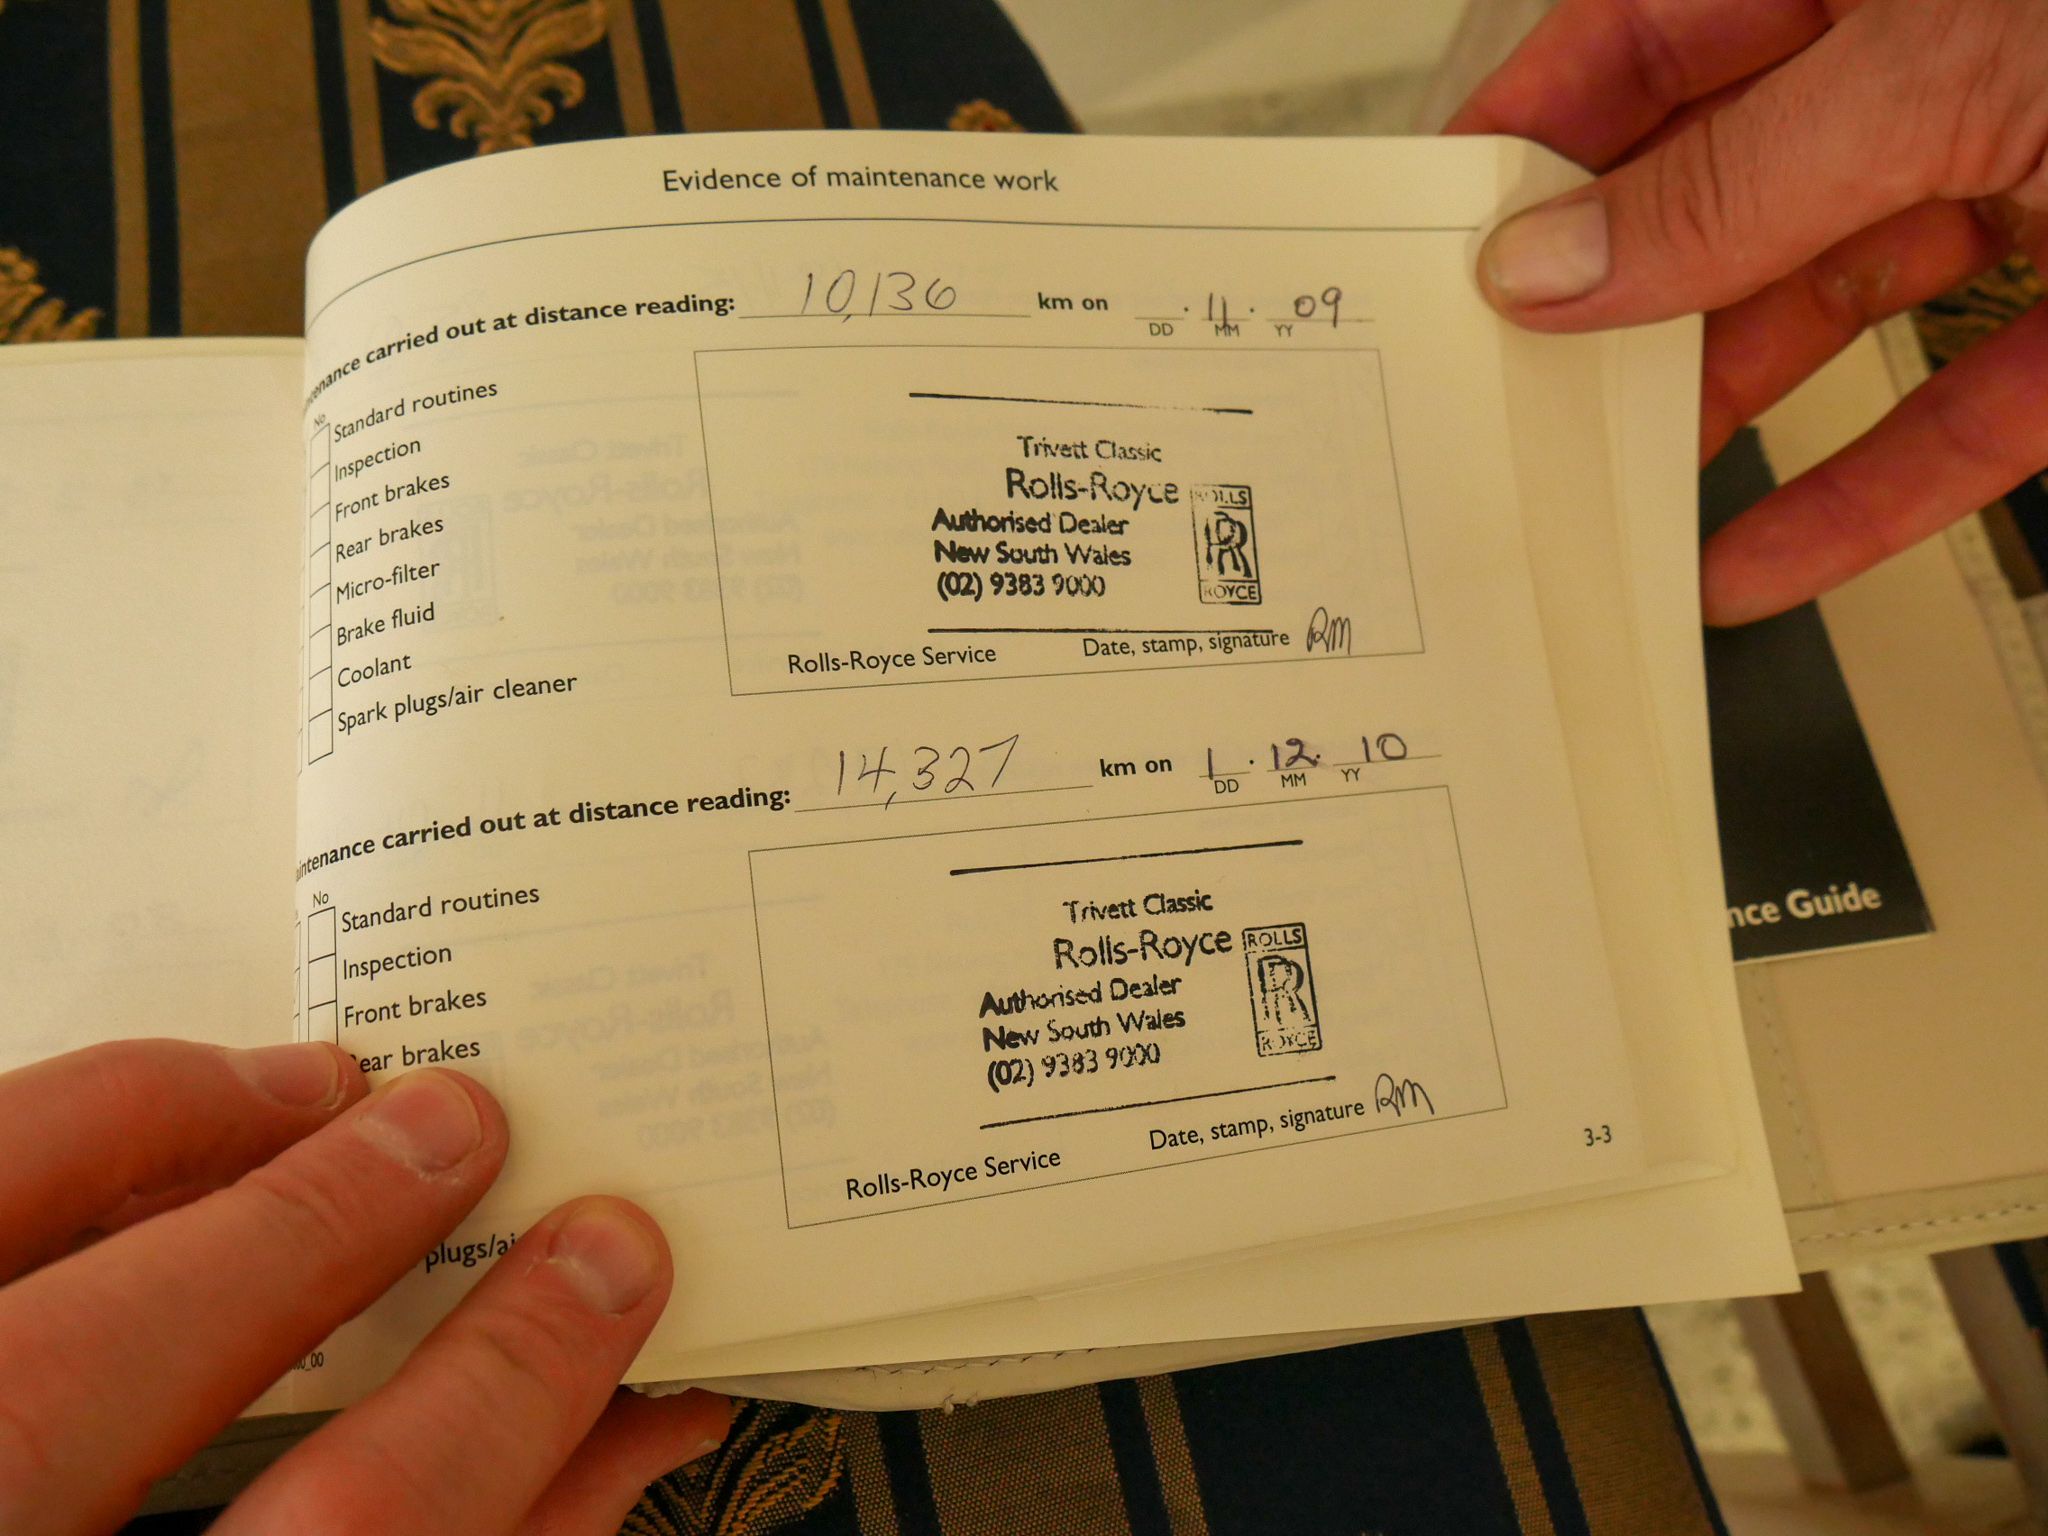 Evidence of maintenance work
carried out at distance reading: 10,136 km on . 11 . 09
DD MM YY
No
Standard routines
Inspection
Front brakes
Rear brakes
Micro-filter
Brake fluid
Coolant
Spark plugs/air cleaner
Trivett Classic
Rolls-Royce
Authorised Dealer
New South Wales
(02) 9383 9000
ROLLS
RR
ROYCE
Rolls-Royce Service Date, stamp, signature RM
carried out at distance reading: 14,327 km on 1 . 12 . 10
DD MM YY
No
Standard routines
Inspection
Front brakes
Rear brakes
plugs/ai
Trivett Classic
Rolls-Royce
Authorised Dealer
New South Wales
(02) 9383 9000
ROLLS
RR
ROYCE
Rolls-Royce Service Date, stamp, signature RM
3-3
nce Guide